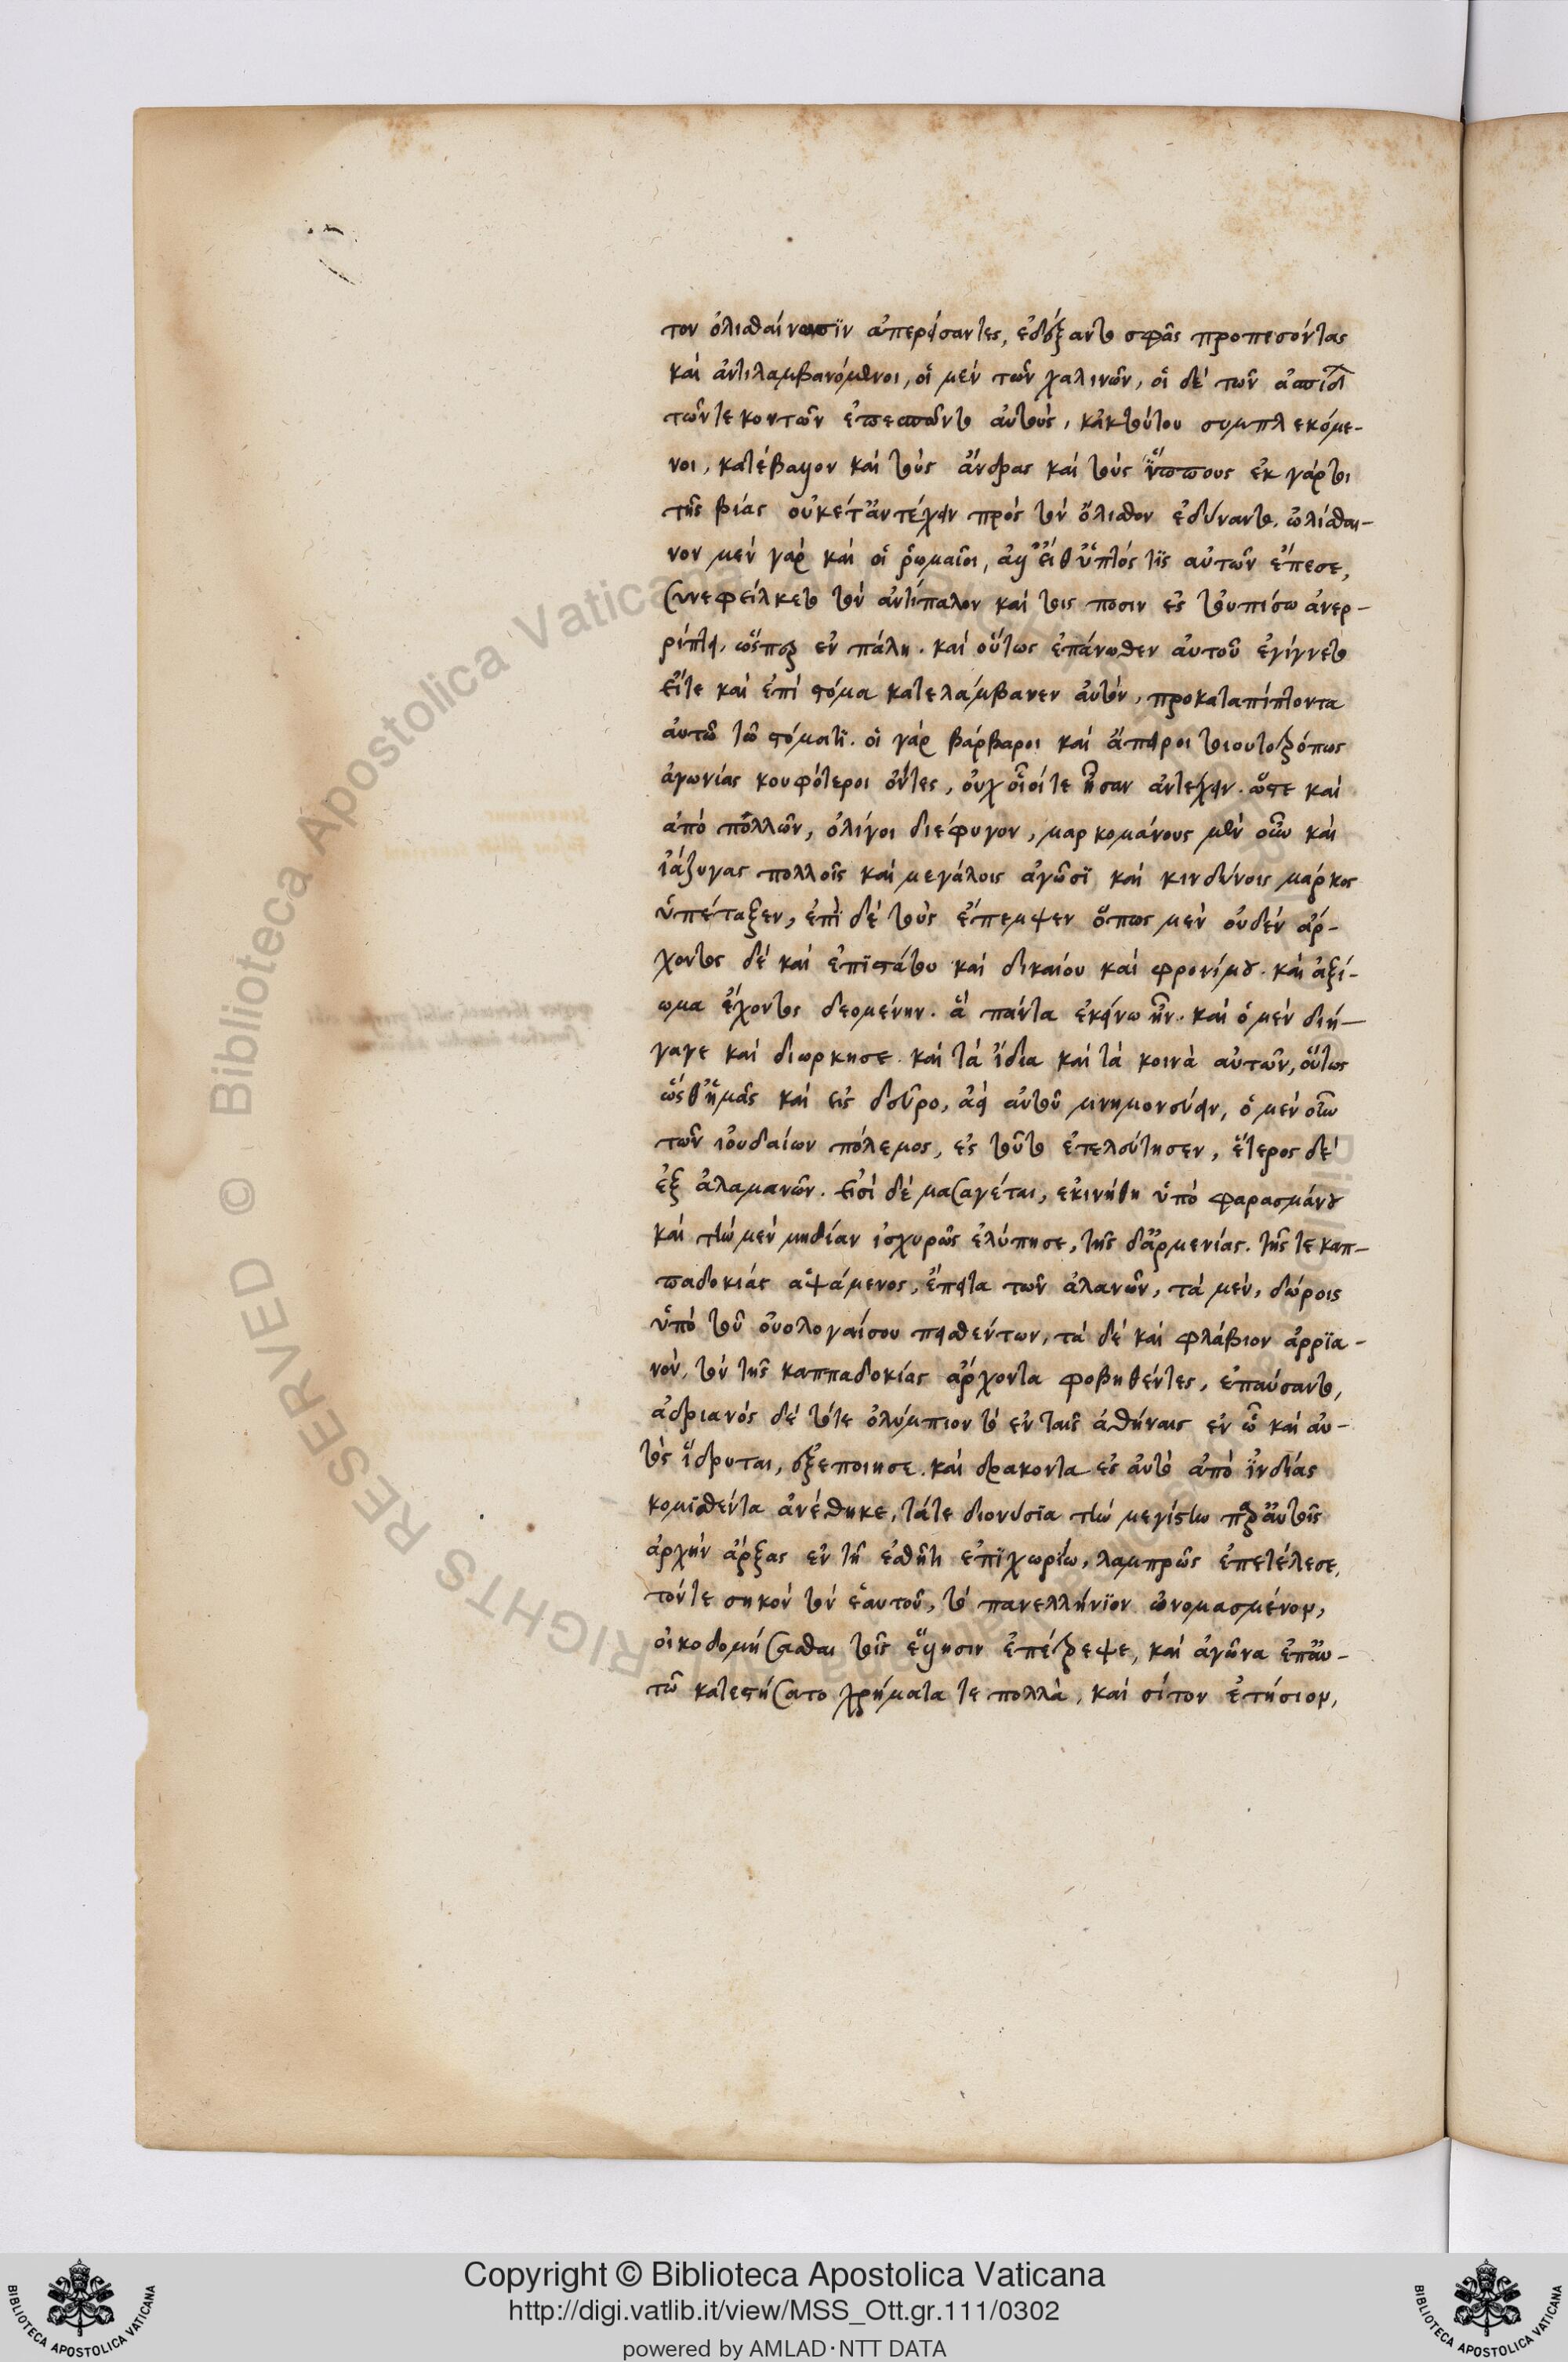 τον ὀλισθαίνωσϊν ἀπερείσαντες, ἐδέξαντο σφᾶς προπεσόντας
καὶ ἀντιλαμβανόμενοι, οἱ μὲν τῶν χαλινῶν, οἱ δὲ τῶν ἀσπίδ
τῶν τε κοντῶν ἐπεσπῶντο αὐτοὺς, κἀκ τούτου συμπλεκόμε-
νοι, κατέβαλλον καὶ τοὺς ἄνδρας καὶ τοὺς ἵππους ἐκ γάρ τοι
τῆς βίας οὐκέτ' ἀντέχειν πρὸς τὸν ὄλισθον ἐδύναντο. ὠλίσθαι-
νον μὲν γὰρ καὶ οἱ ῥωμαῖοι, ἀλλ' εἴθ' ὕπτιός τις αὐτῶν ἔπεσε,
συνεφείλκετο τὸν ἀντίπαλον καὶ τοις ποσιν ἐς τοὐπίσω ἀνερ-
ρίπτει, ὥσπερ ἐν πάλη. καὶ οὕτως ἐπάνωθεν αὐτοῦ ἐγίγνετο
εἴτε καὶ ἐπὶ στόμα κατελάμβανεν αὐτὸν, προκαταπίπτοντα
αὐτῶ τῶ στόματϊ. οἱ γὰρ βάρβαροι καὶ ἄπειροι τοιουτοτρόπως
ἀγωνίας κουφότεροι ὄντες, οὐχ οἷοί τε ἦσαν ἀντέχειν. ὥστε καὶ
ἀπὸ πολλῶν, ὀλίγοι διέφυγον, μαρκομάνους μὲν οὖν καὶ
ἰάζυγας πολλοῖς καὶ μεγάλοις ἀγῶσϊ καὶ κινδύνοις μάρκος
ὑπέταξεν, ἐπὶ δὲ τοὺς ἔπεμψεν ὅπως μὲν οὐδὲν ἄρ-
χοντος δὲ καὶ ἐπϊστάτου καὶ δικαίου καὶ φρονίμου. καὶ ἀξί-
ωμα ἔχοντος δεομένην. ἃ πάντα ἐκείνω ἦν. καὶ ὁ μὲν διή-
γαγε καὶ διωρκησε. καὶ τὰ ἴδια καὶ τὰ κοινὰ αὐτῶν, οὕτως
ὥσθ' ἡμᾶς καὶ εἰς δεῦρο, ἀεὶ αὐτοῦ μνημονεύειν, ὁ μὲν οὖν
τῶν ἰουδαίων πόλεμος, ἐς τοῦτο ἐτελεύτησεν, ἕτερος δὲ
ἐξ ἀλαμανῶν. εἰσὶ δὲ μασαγέται, ἐκινήθη ὑπὸ φαρασμάνου
καὶ τὴν μὲν μηδίαν ἰσχυρῶς ἐλύπησε, τῆς δ' ἀρμενίας. τῆς τε καπ-
παδοκιάς ἁψάμενος, ἔπειτα τῶν ἀλανῶν, τὰ μὲν, δώροις
ὑπὸ τοῦ οὐολογαίσου πεισθέντων, τὰ δὲ καὶ φλάβιον ἀρρϊα-
νὸν, τὸν τῆς καππαδοκίας ἄρχοντα φοβηθέντες, ἐπαύσαντο,
ἀδριανὸς δὲ τότε ὀλύμπιον τὸ ἐν ταῖς ἀθήναις ἐν ᾧ καὶ αὐ-
τὸς ἵδρυται, ἐξεποιησε. καὶ δρακοντα ἐς αὐτὸ ἀπὸ ἰνδίας
κομϊσθέντα ἀνέθηκε, τάτε διονύσϊα τὴν μεγίστην παρ' αὐτοῖς
ἀρχὴν ἄρξας ἐν τῇ ἐσθῆτι ἐπϊχωρίω, λαμπρῶς ἐπετέλεσε,
τόν τε σηκὸν τὸν ἑαυτοῦ, τὸ πανελλήνϊον ὠνομασμένον,
οἰκοδομήσασθαι τοῖς ἕλλησιν ἐπέτρεψε, καὶ ἀγῶνα ἐπ' αὐ-
τῶ κατεστήσατο χρήματα τε πολλὰ, καὶ σῖτον ἐτήσιον,
Copyright © Biblioteca Apostolica Vaticana
http://digi.vatlib.it/view/MSS_Ott.gr.111/0302
powered by AMLAD·NTT DATA